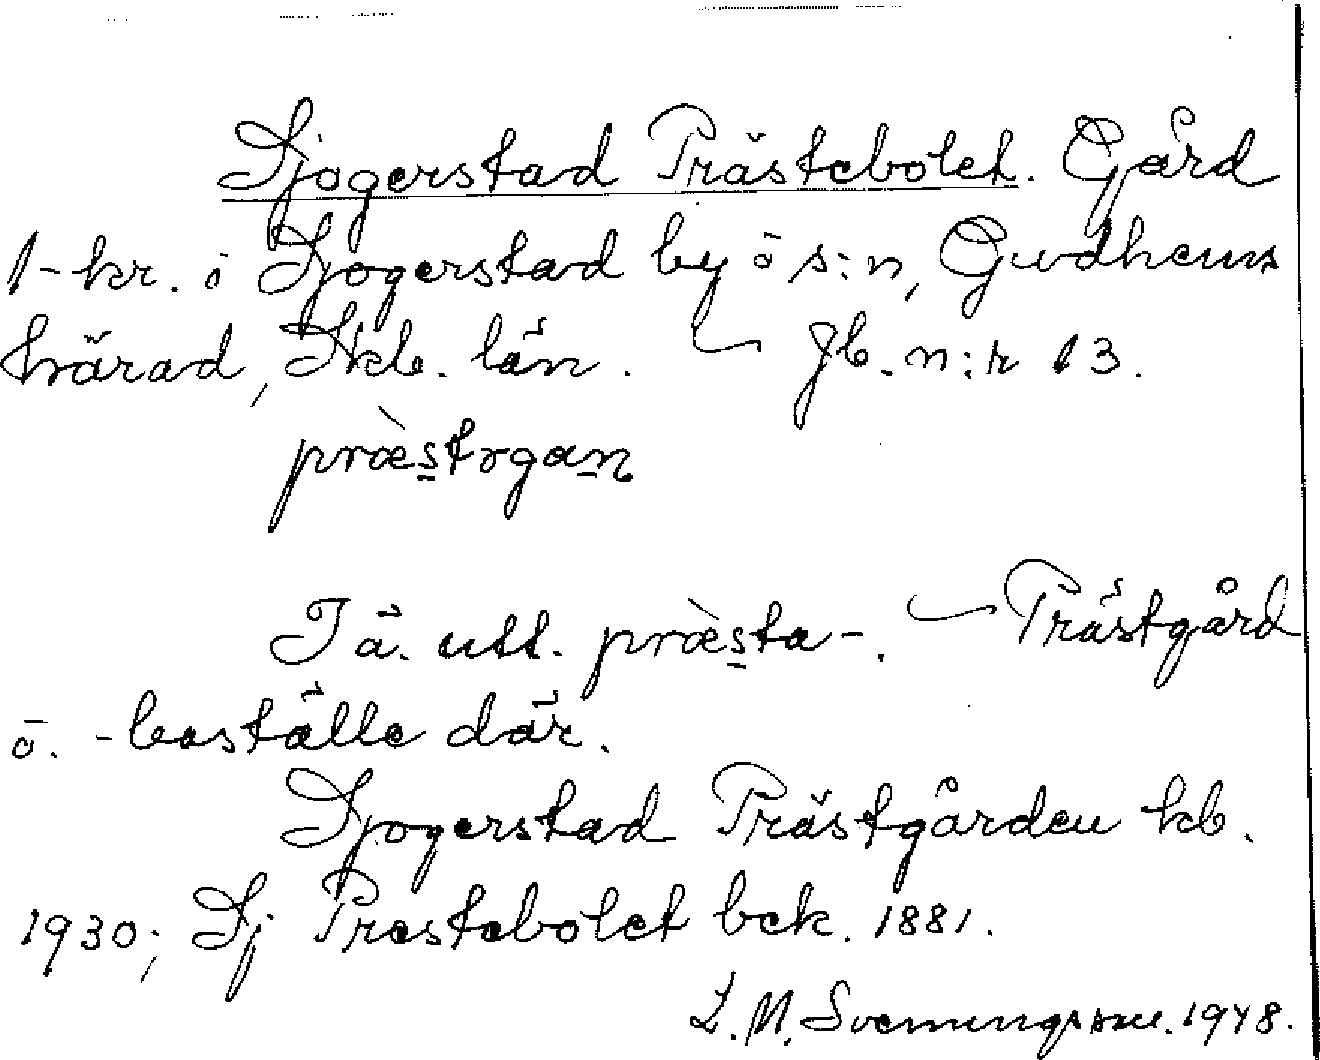 Sjogerstad Prästebolet. Gård
1-kr. i Sjogerstad by o s:n, Gudhems
härad, Skb. län. — Jb. n:r 13.
præ̀strgan
I ä. utt. præ̀sta-. — Prästgård
o. -boställe där.
Sjogerstad Prästgården kb.
1930; Sj Prestebolet bek. 1881.
L. M. Svenningsson. 1948.